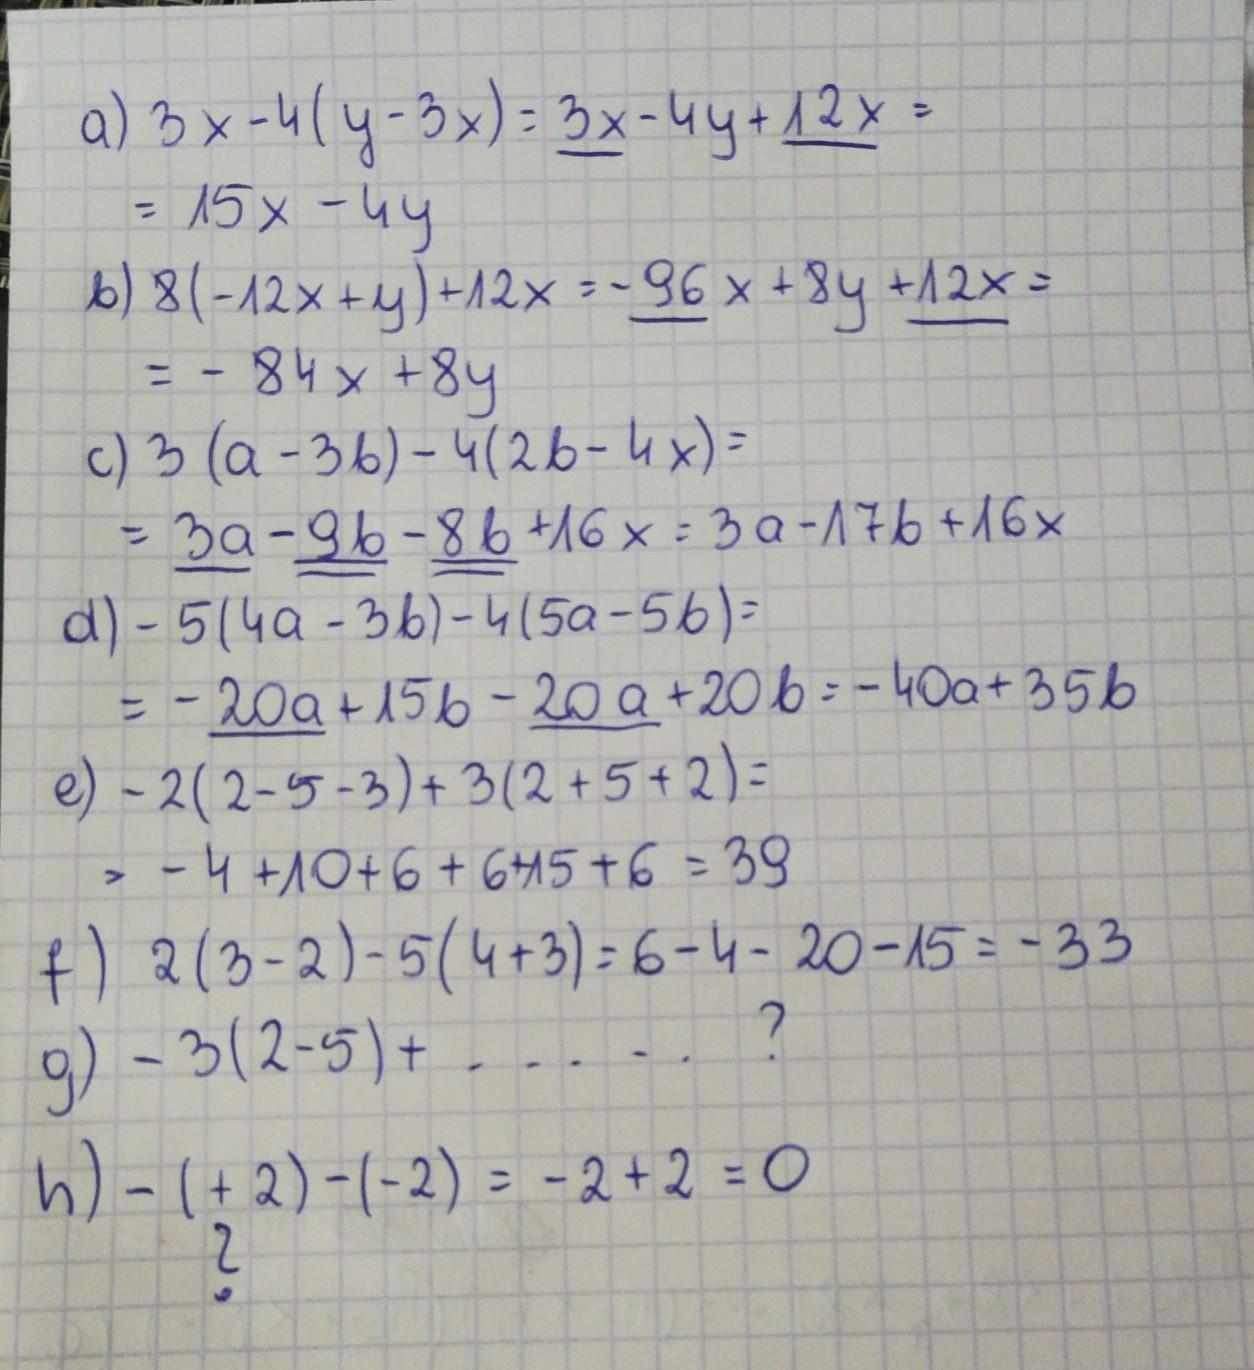 a) 3x-4(y-3x)=3x-4y+12x=
= 15x -4y
b) 8(-12x+y)+12x=-96x+8y+12x=
= - 84x +8y
c) 3 (a-3b)-4(2b-4x)=
= 3a-9b-8b+16x=3a-17b+16x
d) - 5(4a-3b)-4(5a-5b)=
= -20a+15b-20a+20b=-40a+35b
e) -2(2-5-3)+3(2+5+2)=
= -4+10+6+6+15+6=39
f) 2(3-2)-5(4+3)=6-4-20-15=-33
g) -3(2-5)+ . - . . - . ?
h) -(+2)-(-2) = -2+2 =0
?